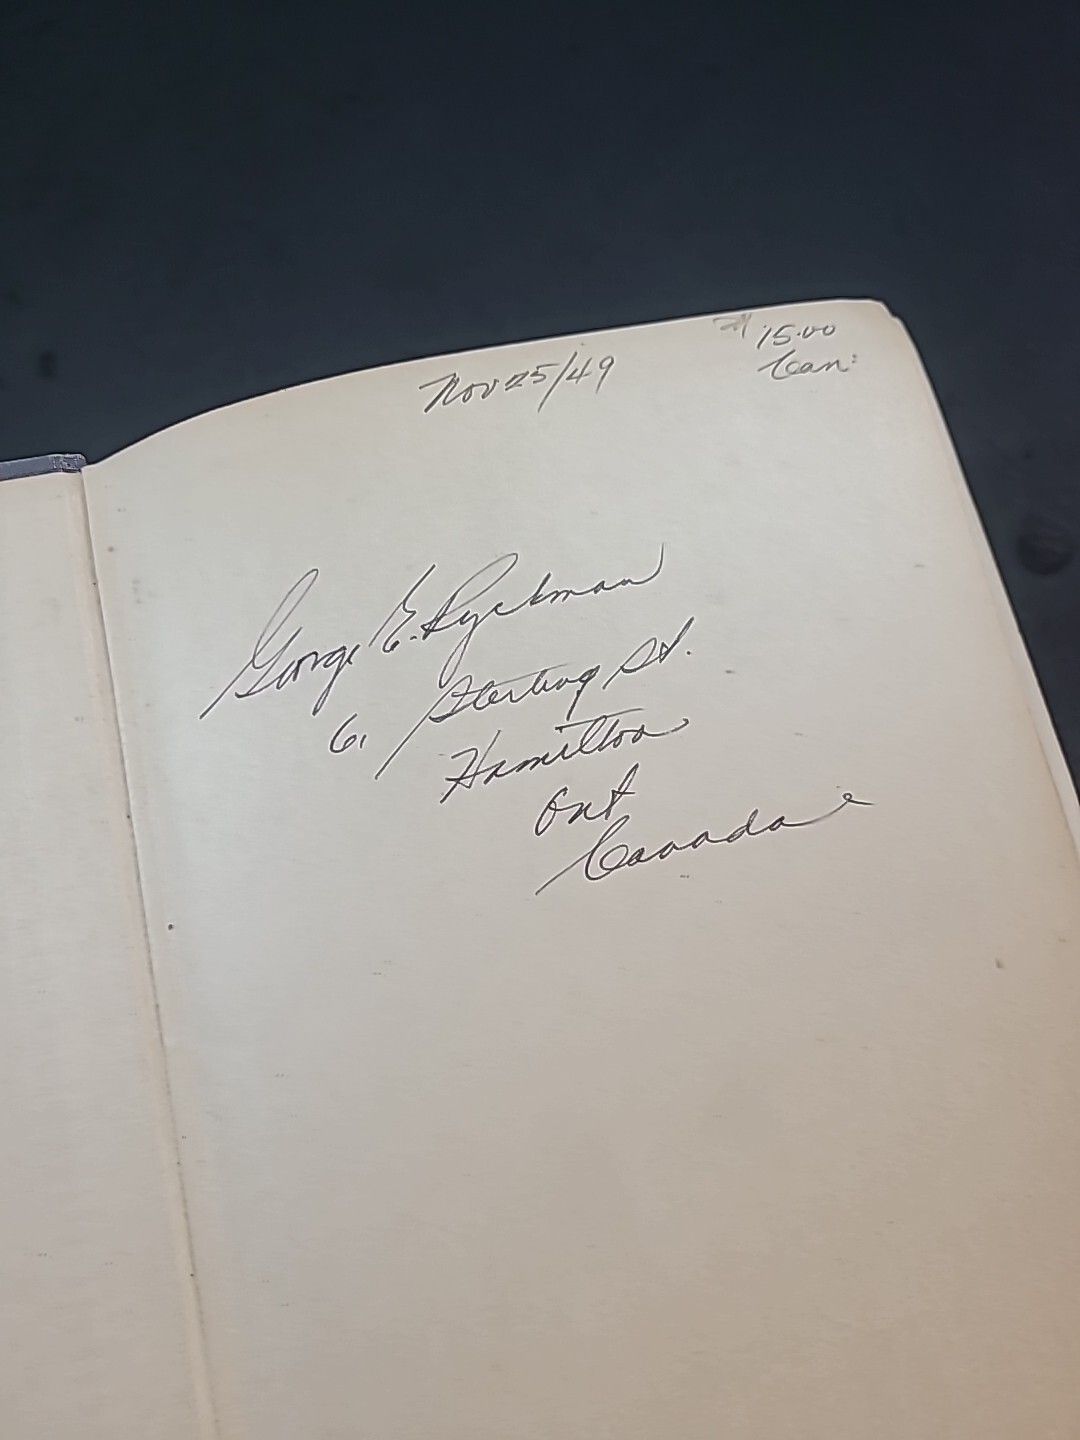 15.00
Can:
Nov 25/49
George E. Ryckman
61 Sterling St.
Hamilton
Ont
Canada